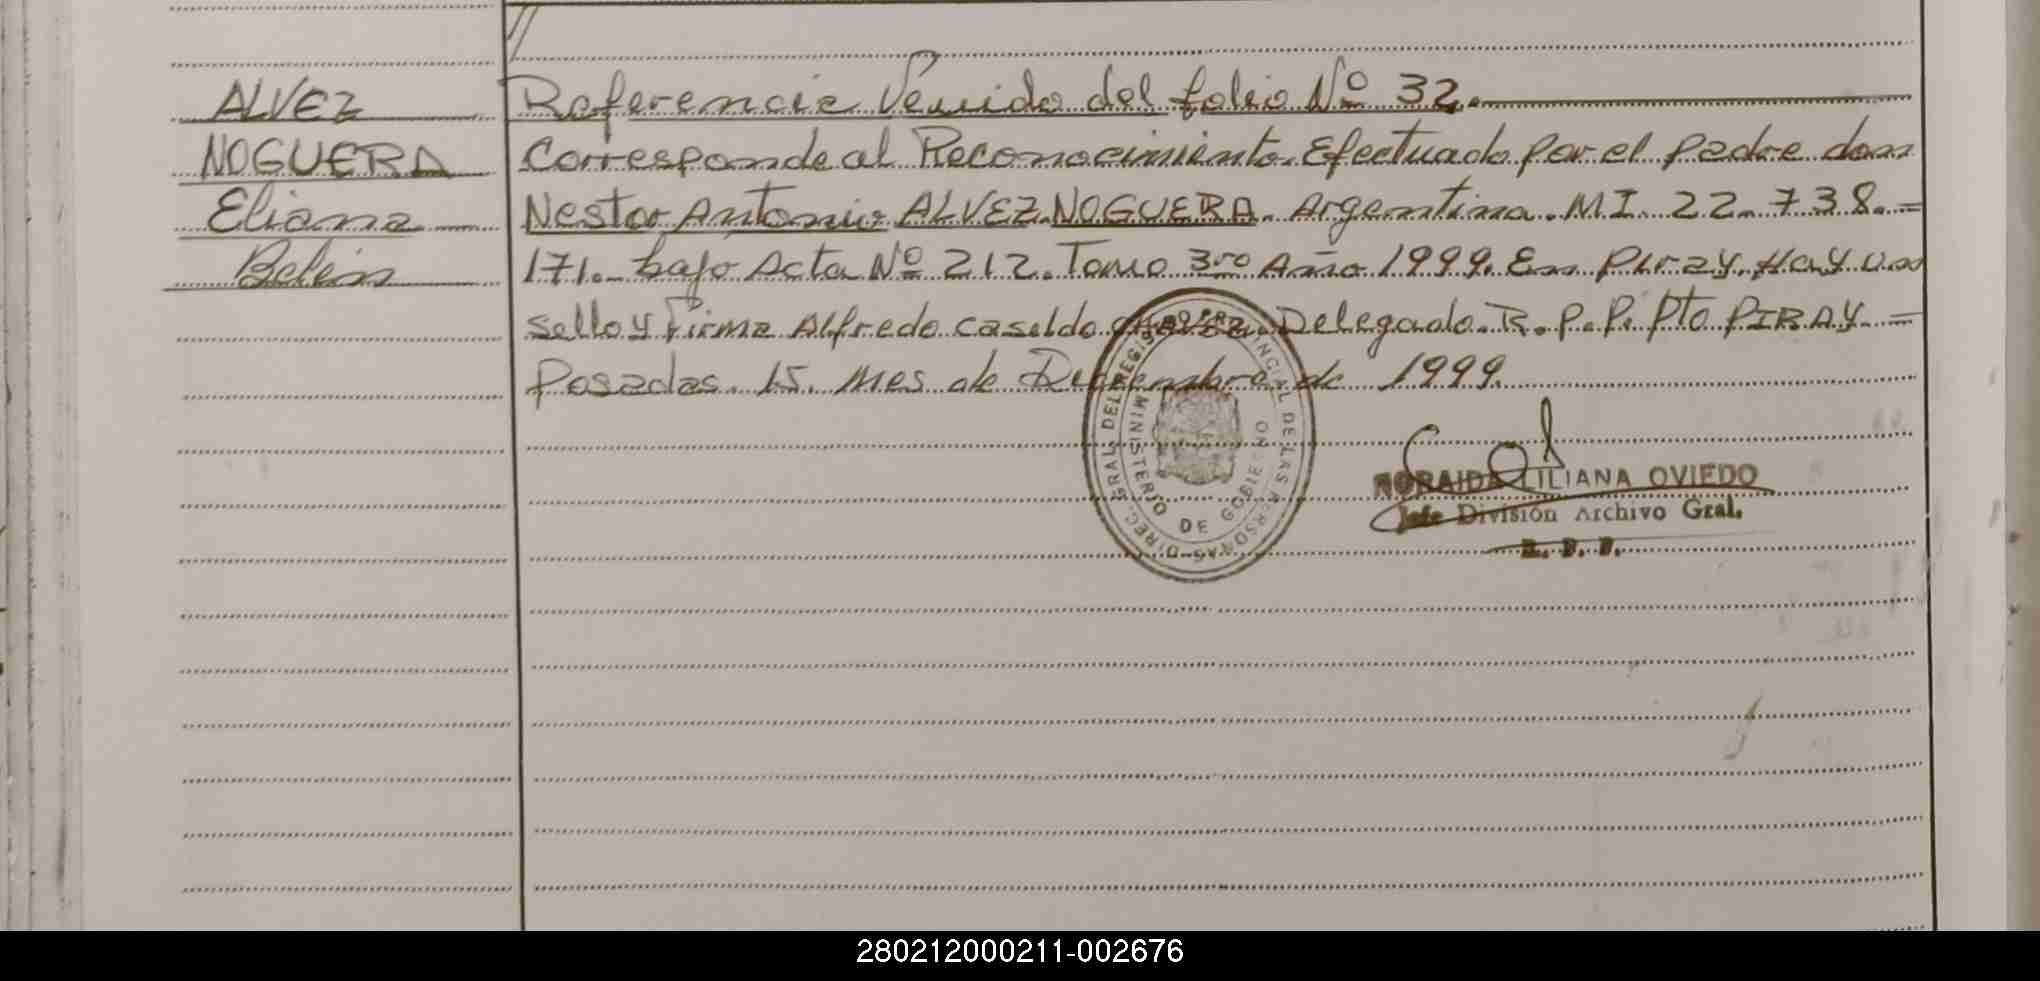 ALVEZ
NOGUERA
Eliana
Belén
Referencia Venido del folio Nº 32.
Corresponde al Reconocimiento. Efectuado por el padre don
Nestor Antonio ALVEZ NOGUERA. Argentina. M.I. 22.738.=
171.- bajo Acta Nº 212. Tomo 3ro Año 1999. En Piray. Hay un
sello y Firma Alfredo Delegado. R.P.P. Pto PIRAY.=
Posadas. 15. Mes de Diciembre de 1999.
DIREC. GRAL. DEL REGISTRO PROVINCIAL DE LAS PERSONAS
MINISTERIO DE GOBIERNO
NORAIDA LILIANA OVIEDO
Jefe División Archivo Gral.
280212000211-002676